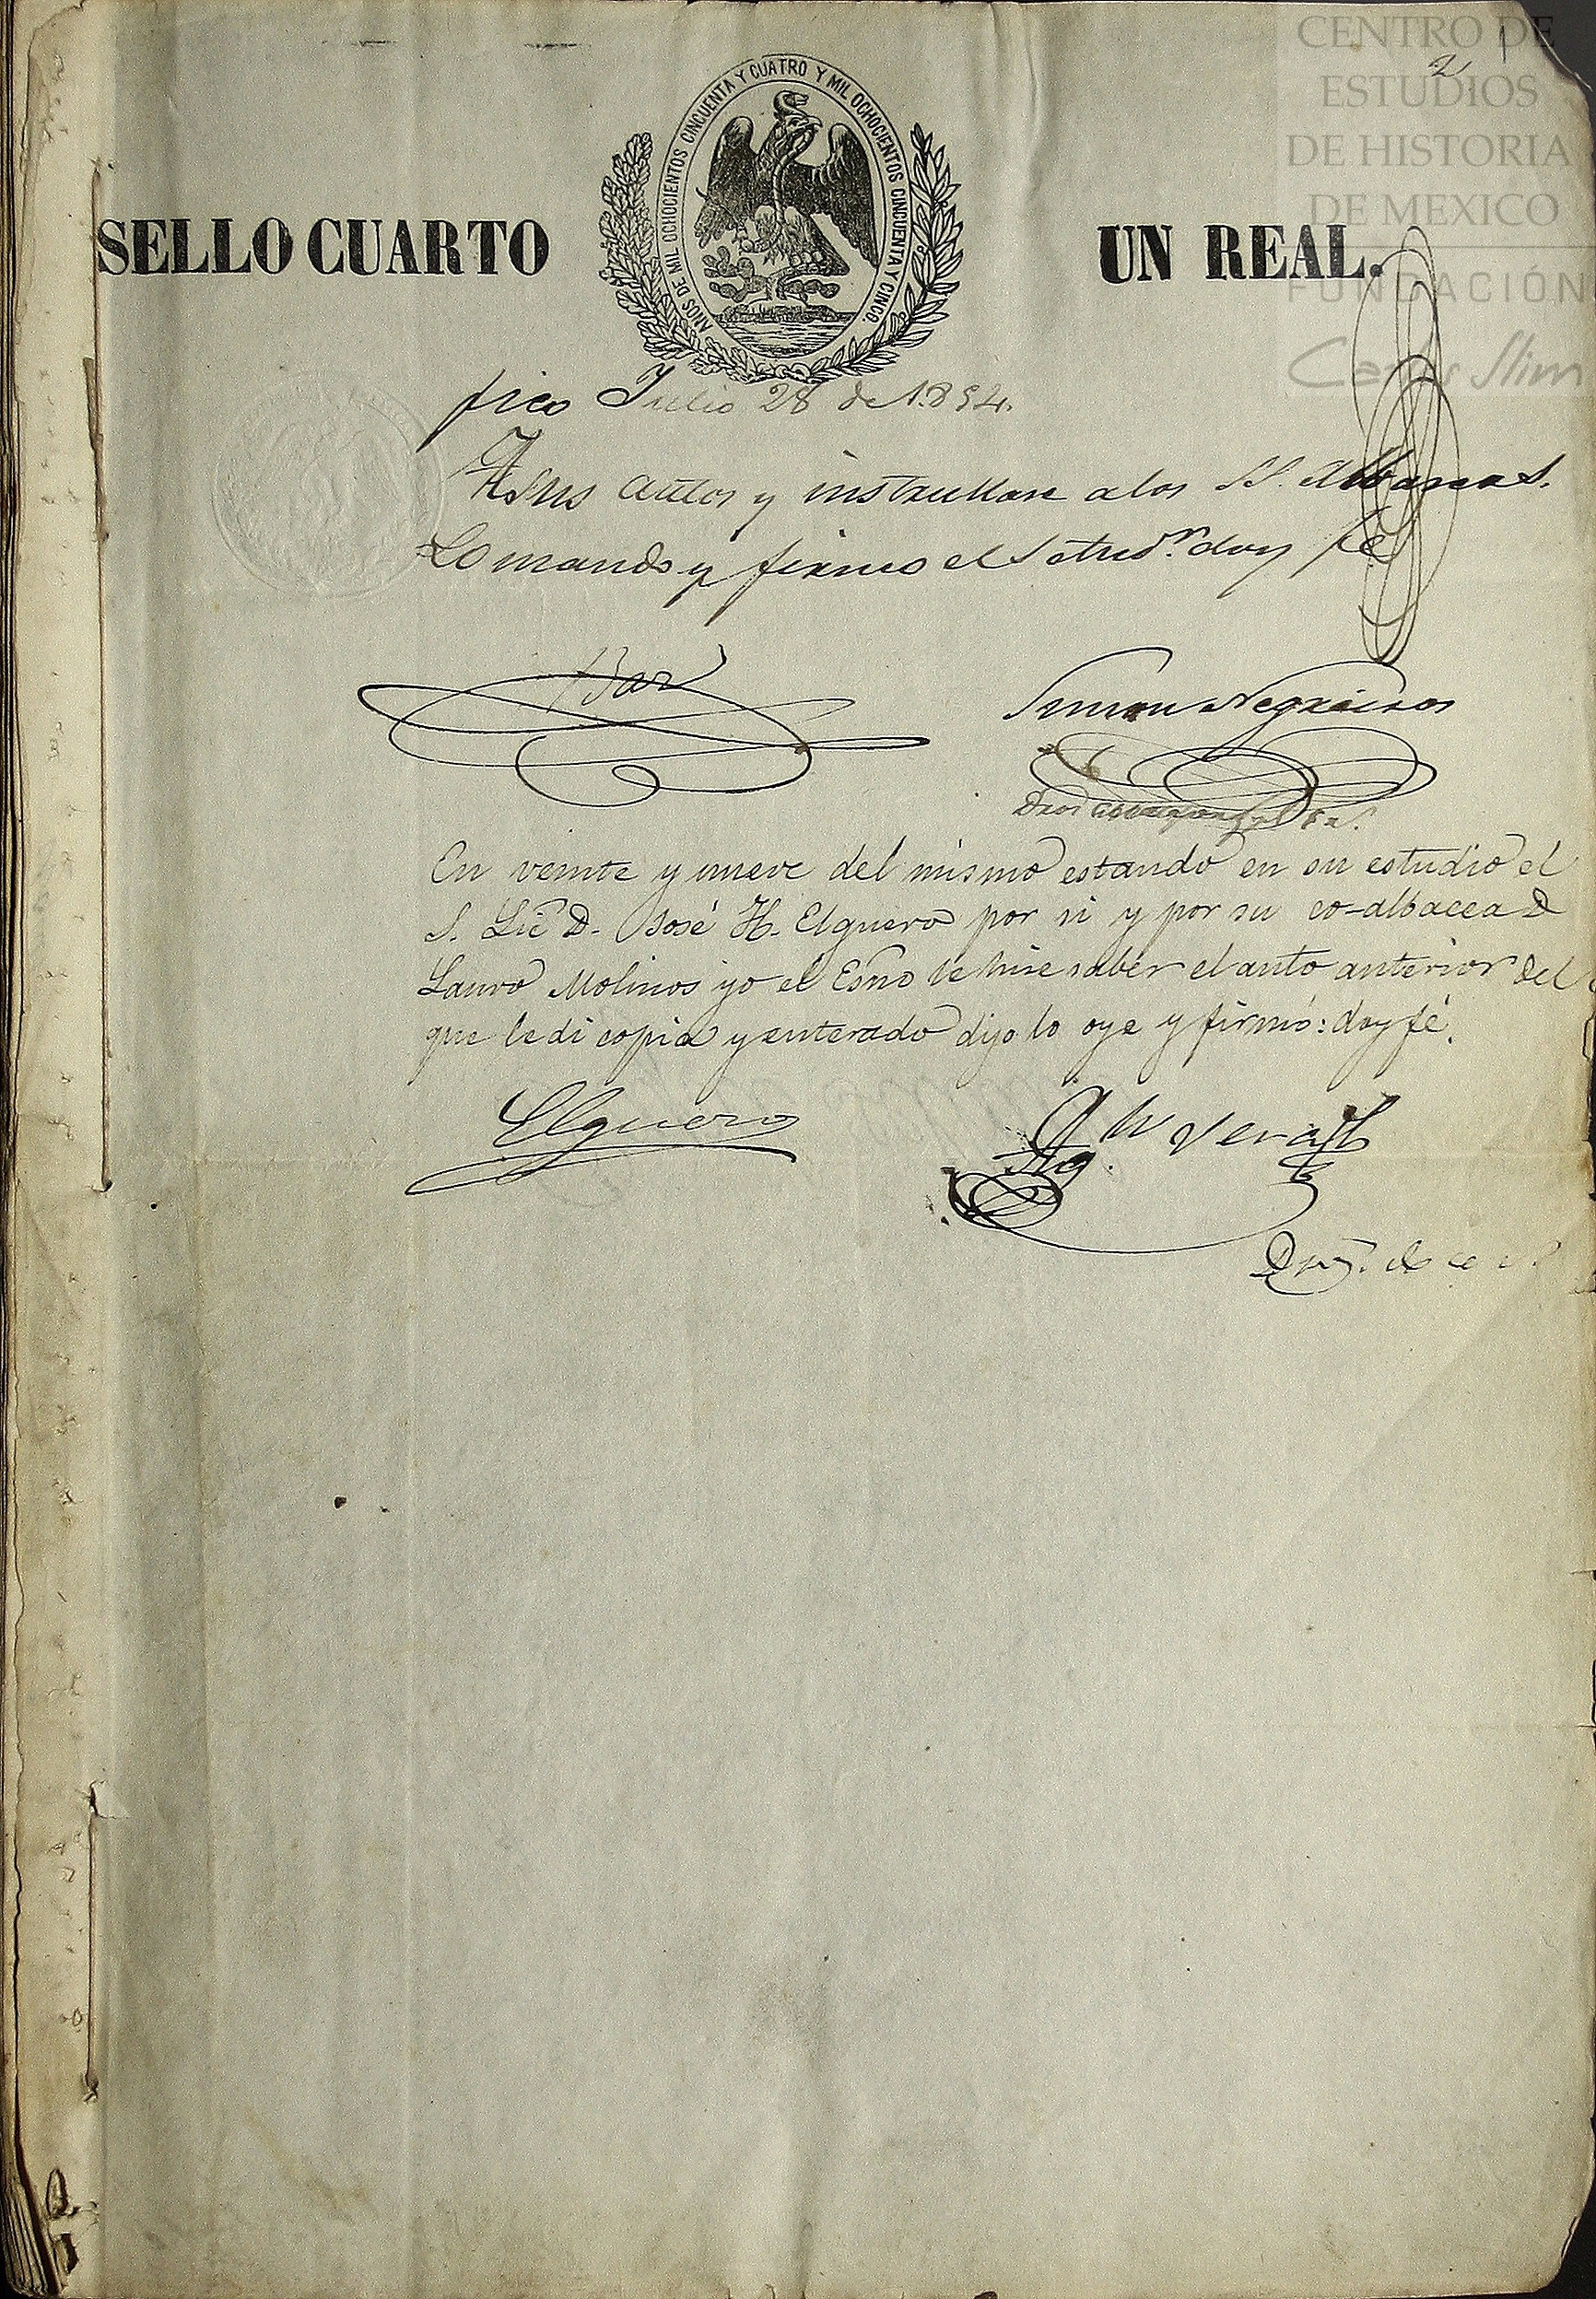 CENTRO DE
ESTUDIOS
DE HISTORIA
DE MEXICO
FUNDACIÓN
Carlos Slim
2
AÑOS DE MIL OCHOCIENTOS CINCUENTA Y CUATRO Y MIL OCHOCIENTOS CINCUENTA Y CINCO.
SELLO CUARTO UN REAL.
Julio 28 de 1.854.
A sus autos y a los SS. Albaceas.
Lo mando y firmo el doy fé
Simon Negreiros
En veinte y nueve del mismo estando en su estudio el
S. Lic D. José H. Elguero por si y por su co-albacea D
Lauro Molinos yo el Esño le hise saber el auto anterior del
que le di copia y enterado dijo lo oye y firmó: doy fé.
Elguero